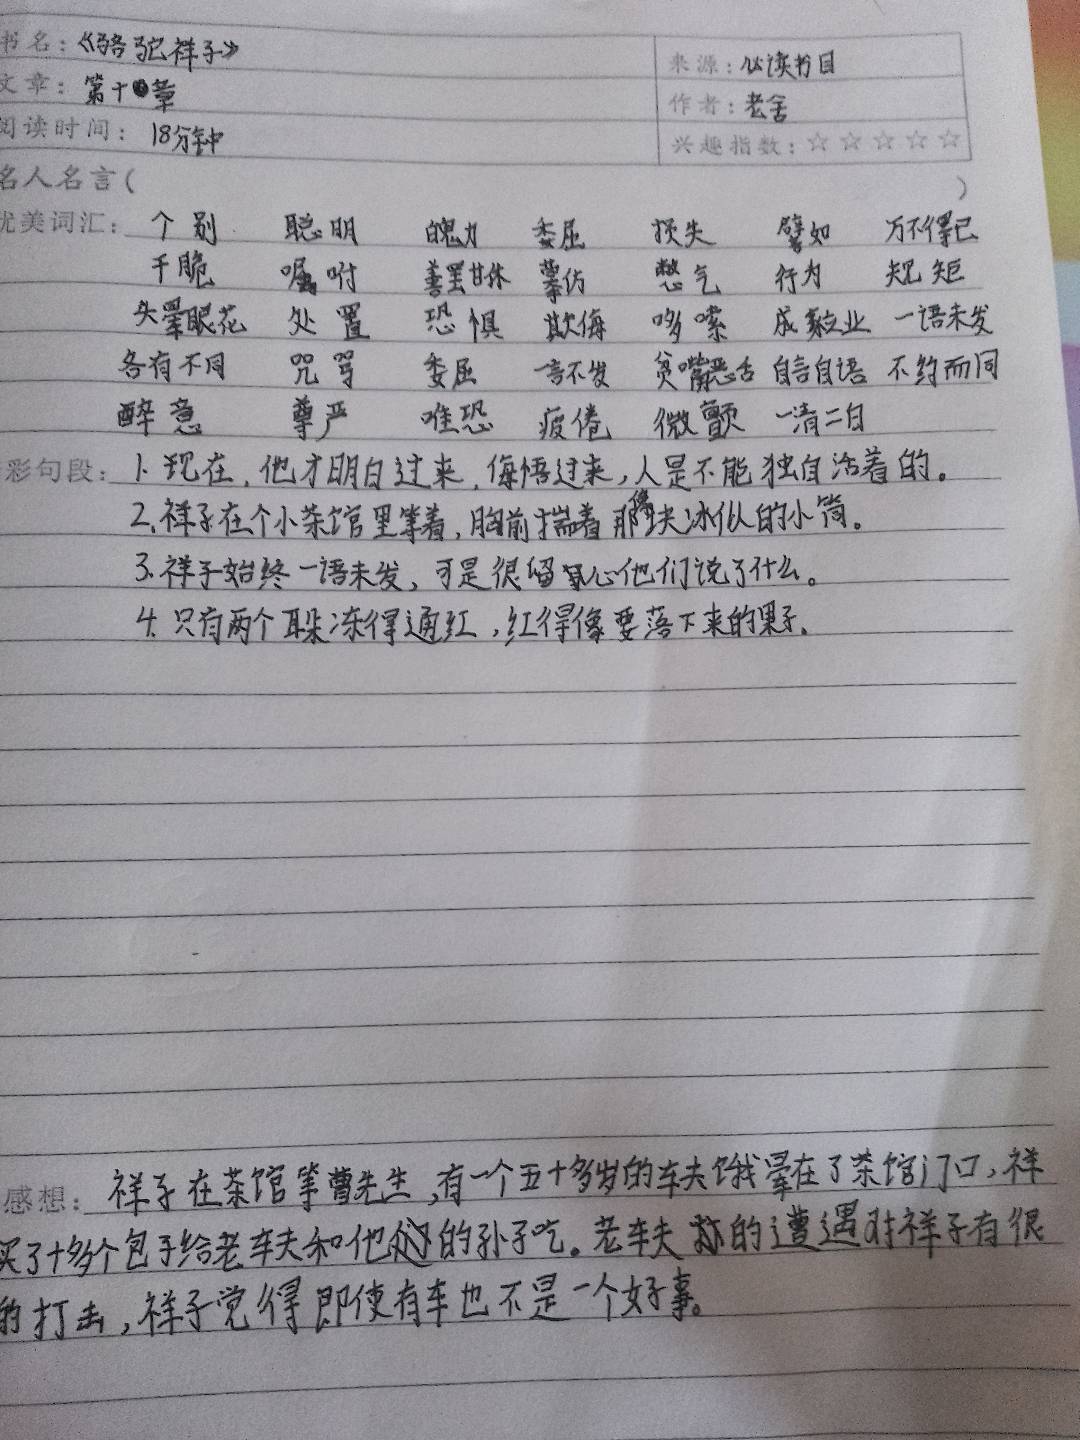 书名：《骆驼祥子》
来源：必读书目
文章：第十章
作者：老舍
阅读时间：18分钟
兴趣指数：☆☆☆☆☆
名人名言( )
优美词汇：个别 聪明 魄力 委屈 损失 譬如 万不得已
干脆 嘱咐 善罢甘休 摹仿 憋气 行为 规矩
头晕眼花 处置 恐惧 欺侮 哆嗦 成家立业 一语未发
各有不同 咒骂 委屈 一言不发 贫嘴恶舌 自言自语 不约而同
醉意 尊严 唯恐 疲倦 微颤 一清二白
彩句段：1.现在，他才明白过来，悔悟过来，人是不能独自活着的。
2.祥子在个小茶馆里等着，胸前揣着那像块冰似的小筒。
3.祥子始终一语未发，可是很留心他们说了什么。
4.只有两个耳朵冻得通红，红得像要落下来的果子。
感想：祥子在茶馆等曹先生，有一个五十多岁的车夫饿晕在了茶馆门口，祥
买了十多个包子给老车夫和他的孙子吃。老车夫的遭遇对祥子有很
的打击，祥子觉得即使有车也不是一个好事。